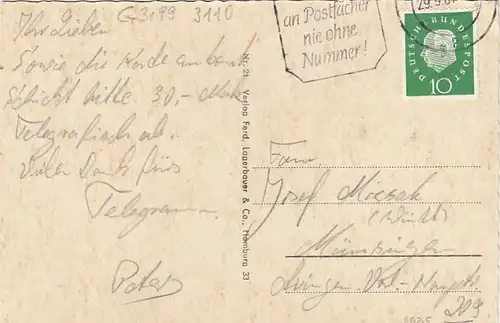 G3199 3110
Ihr Lieben
Sowie die Karde ankommt
Schickt bitte 30,- Mark
Telegrafisch ab.
Vielen Dank fürs
Telegramm.
Peter
Nr. 21 Verlag Ferd. Lagerbauer & Co., Hamburg 33
an Postfächer
nie ohne
Nummer!
29.9.
DEUTSCHE BUNDESPOST
10
Fam
Josef
(Württ)
Münsingen
209